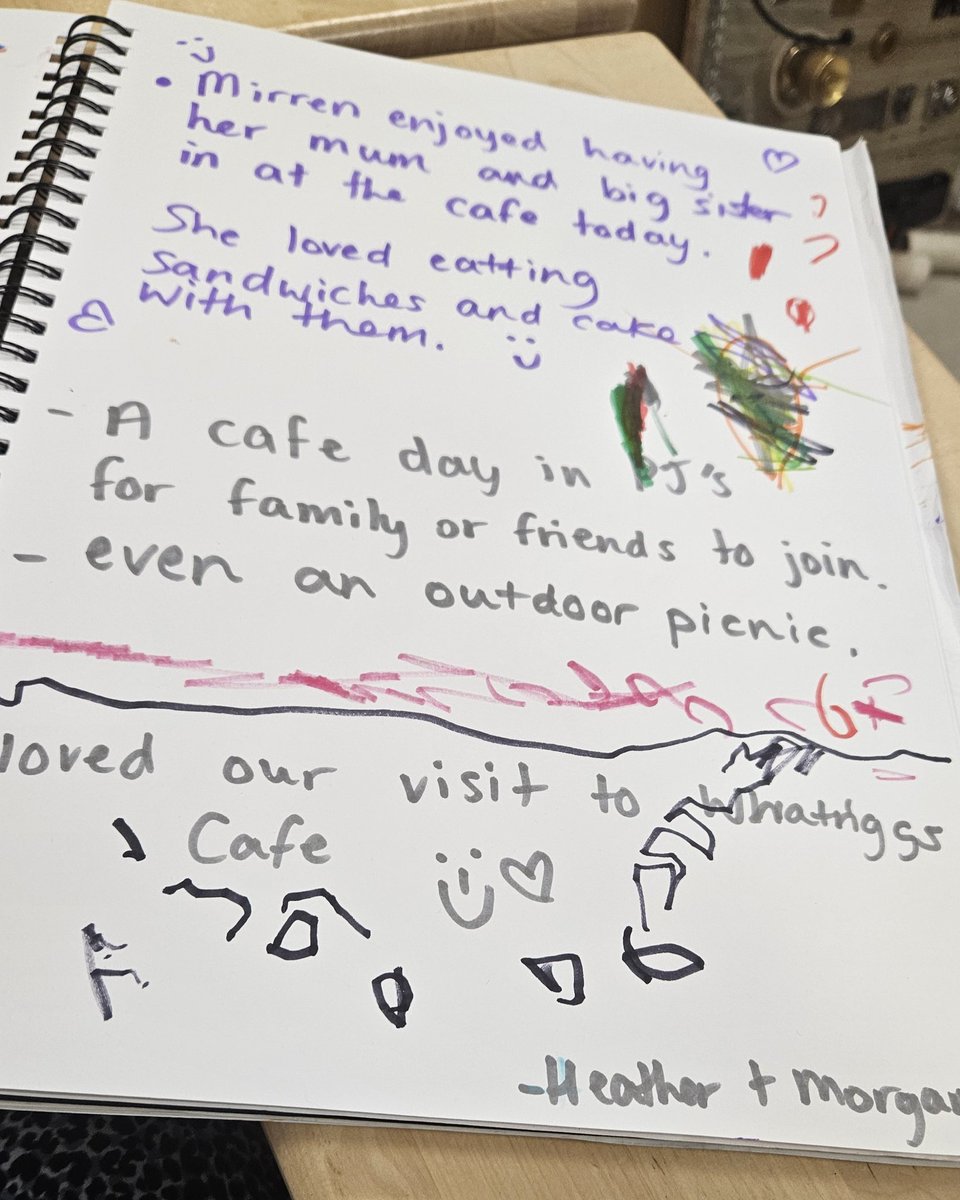 • Mirren enjoyed having
her mum and big sister
in at the cafe today.
She loved eatting
sandwiches and cake
with them.
- A cafe day in PJ's
for family or friends to join.
- even an outdoor picnic.
loved our visit to Whatriggs
Cafe
-Heather + Morgan